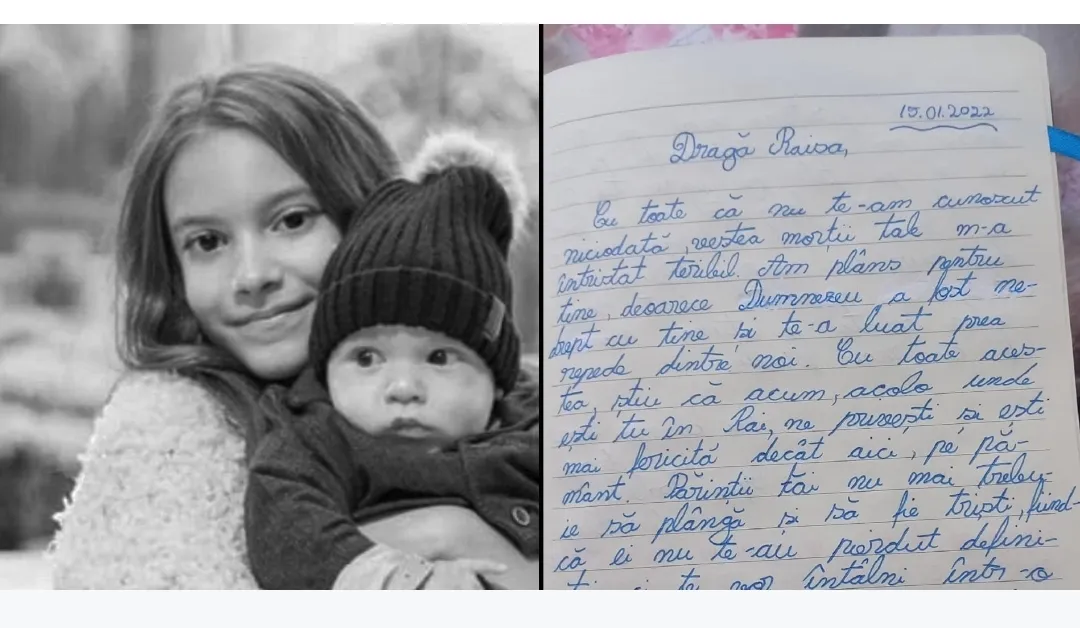 15.01.2022
Dragă Raisa,
Cu toate că nu te-am cunoscut
niciodată, vestea morții tale m-a
întristat teribil. Am plâns pentru
tine, deoarece Dumnezeu a fost ne-
drept cu tine și te-a luat prea
repede dintre noi. Cu toate aces-
tea, știu că acum, acolo unde
ești tu în Rai, ne privești și ești
mai fericită decât aici, pe pă-
mânt. Părinții tăi nu mai trebu-
ie să plângă și să fie triști, fiind-
că ei nu te-au pierdut defini-
te vor întâlni într-o